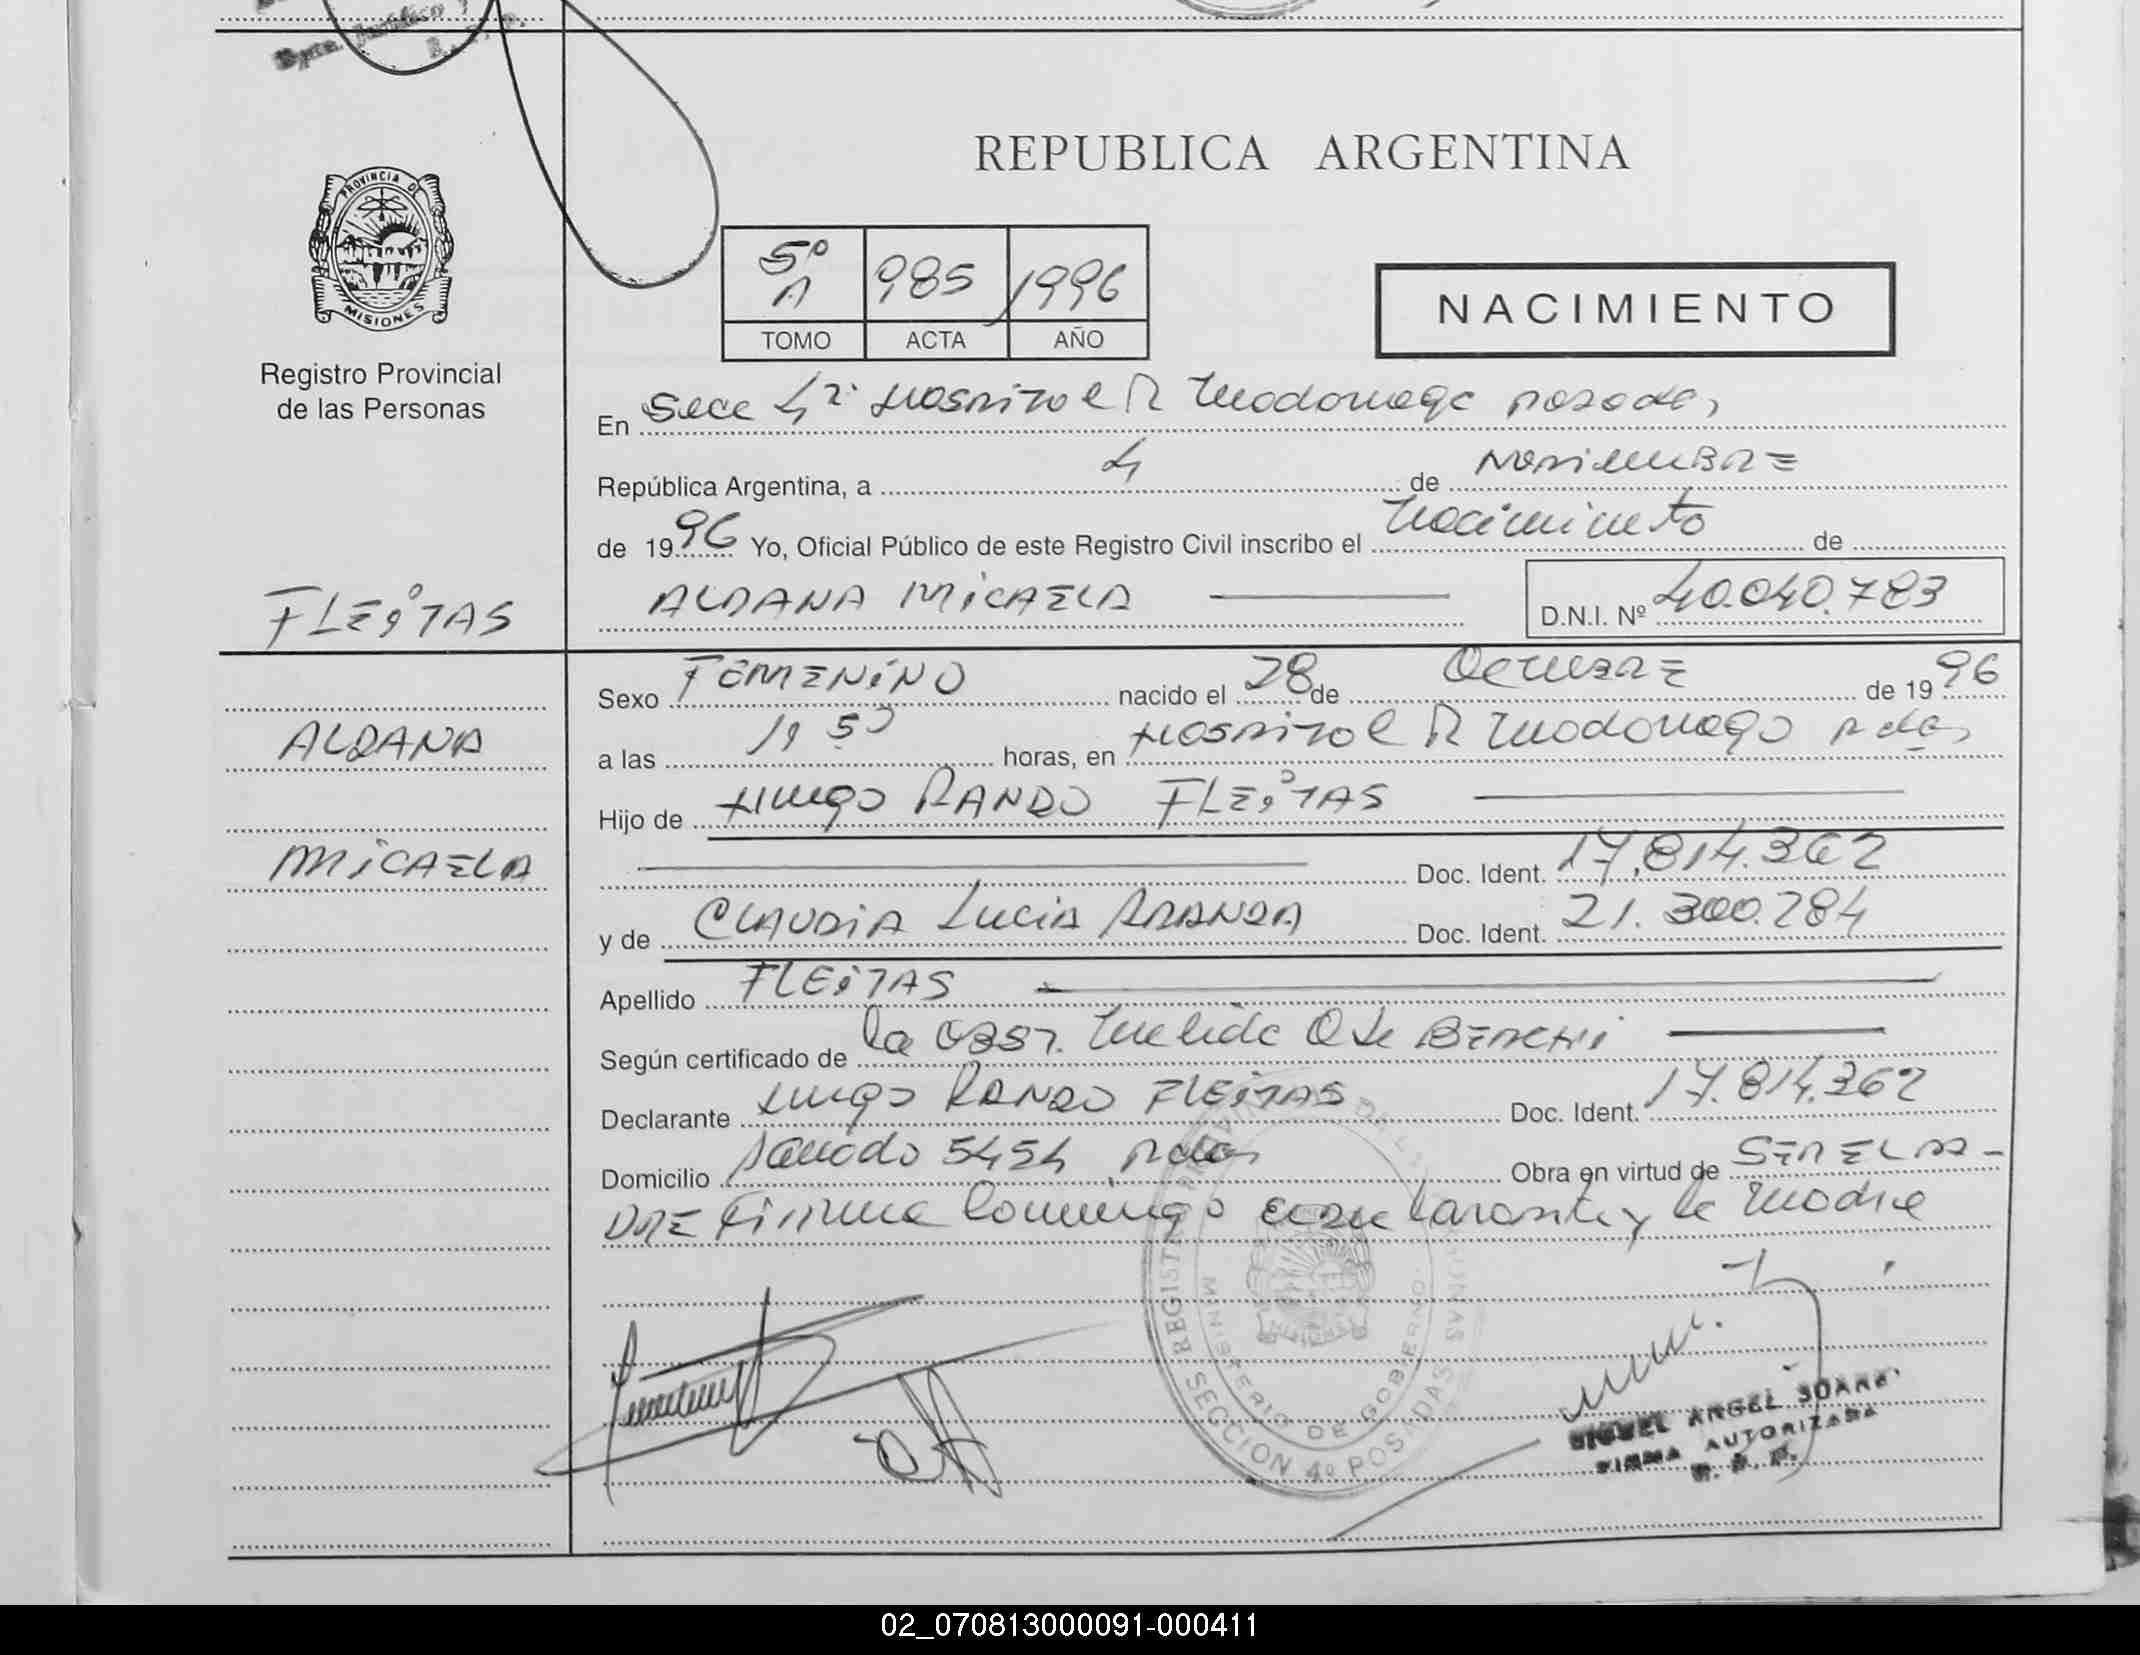 Dpto. Jurídico
PROVINCIA DE
MISIONES
Registro Provincial
de las Personas
REPUBLICA ARGENTINA
5º A 985 1996
TOMO ACTA AÑO
NACIMIENTO
En Secc 4ª Hospital R Madariaga Posadas,
República Argentina, a 4 de Noviembre
de 1996 Yo, Oficial Público de este Registro Civil inscribo el Nacimiento de
FLEITAS
ALDANA MICAELA D.N.I. Nº 40.040.783
Sexo FEMENINO nacido el 28 de Octubre de 1996
ALDANA
a las 19 50 horas, en Hospital R Madariaga Pdas,
Hijo de Hugo RANDO FLEITAS
MICAELA
Doc. Ident. 17.814.362
y de CLAUDIA Lucia ARANDA Doc. Ident. 21.300.284
Apellido FLEITAS
Según certificado de la Obst. Nelida
Declarante Hugo RANDO FLEITAS Doc. Ident. 17.814.362
Domicilio 5454 Pdas Obra en virtud de SER EL PA-
DRE Firma Conmigo el declarante y la madre
REGISTRO PROVINCIAL DE LAS PERSONAS
MINISTERIO DE GOBIERNO
SECCION 4º POSADAS
MIGUEL ANGEL
FIRMA AUTORIZADA
R. P. P.
02_070813000091-000411